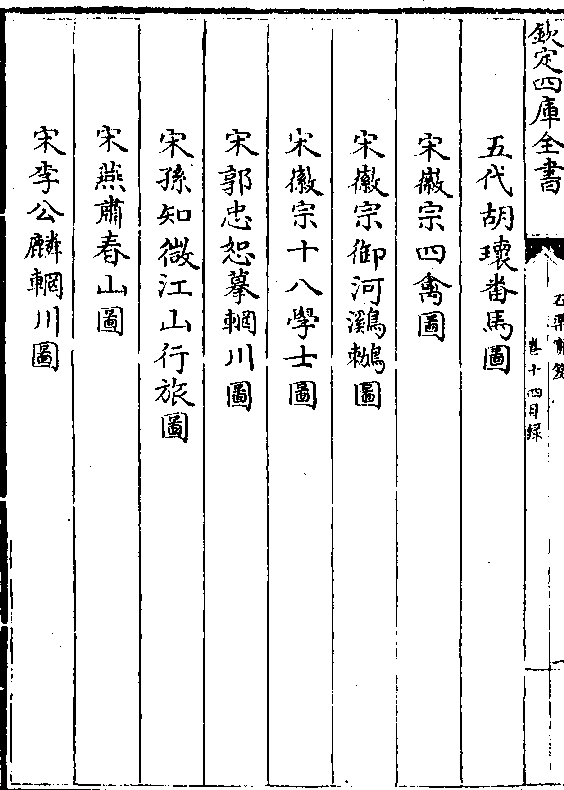 欽定四庫全書
石渠寶笈
卷十四目録
五代胡瓌番馬圖
宋徽宗四禽圖
宋徽宗御河鸂鶒圖
宋徽宗十八學士圖
宋郭忠恕摹輞川圖
宋孫知微江山行旅圖
宋燕肅春山圖
宋李公麟輞川圖